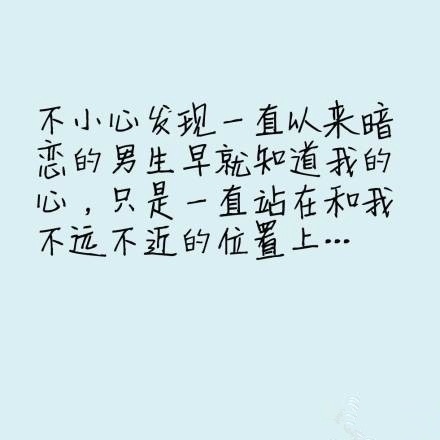 不小心发现一直以来暗
恋的男生早就知道我的
心，只是一直站在和我
不远不近的位置上…